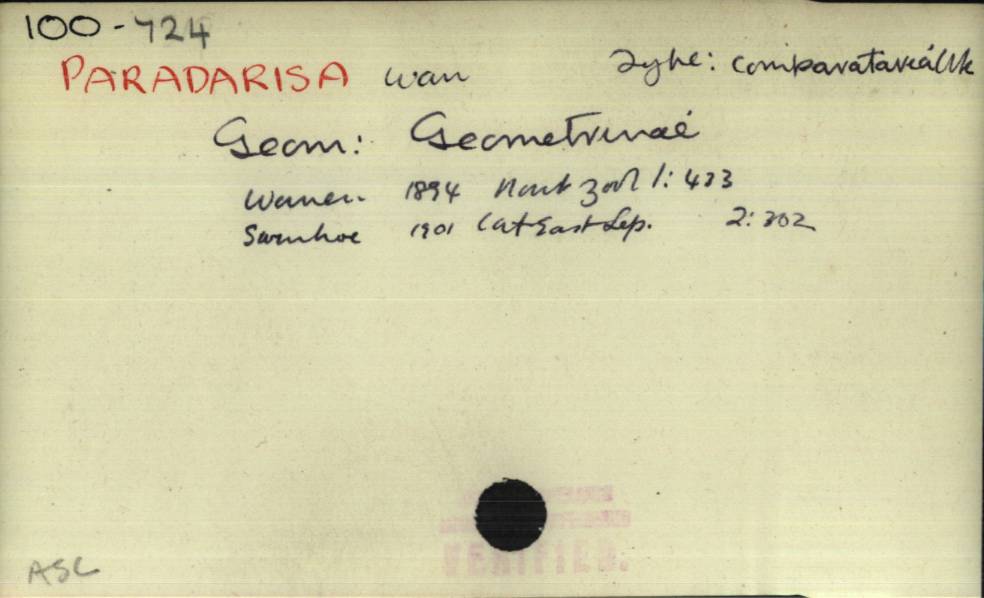 100-724
PARADARISA Warr Type: comparataria Wlk
Geom: Geometrinae
Warren 1894 Novit Zool 1: 433
Swinhoe 1901 Cat East Lep. 2: 302
VERIFIED.
ASC